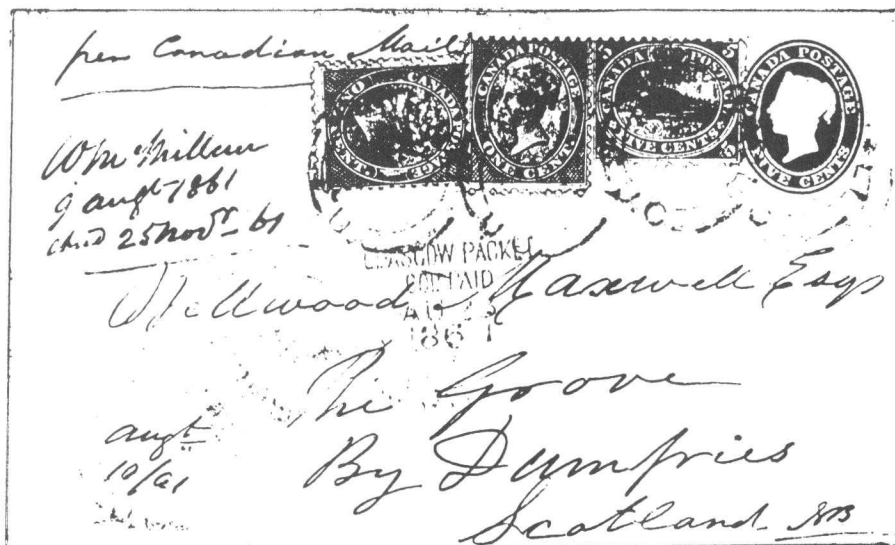 per Canadian Mail
CANADA POSTAGE
ONE CENT
CANADA POSTAGE
ONE CENT
5 CANADA POSTAGE 5
FIVE CENTS
CANADA POSTAGE
FIVE CENTS
9 augt 1861
25 Novr 61
GLASGOW PACKET
PAID
AU
1861
Wellwood Maxwell Esqr
The Grove
By Dumfries
Scotland NB
augt
10/61